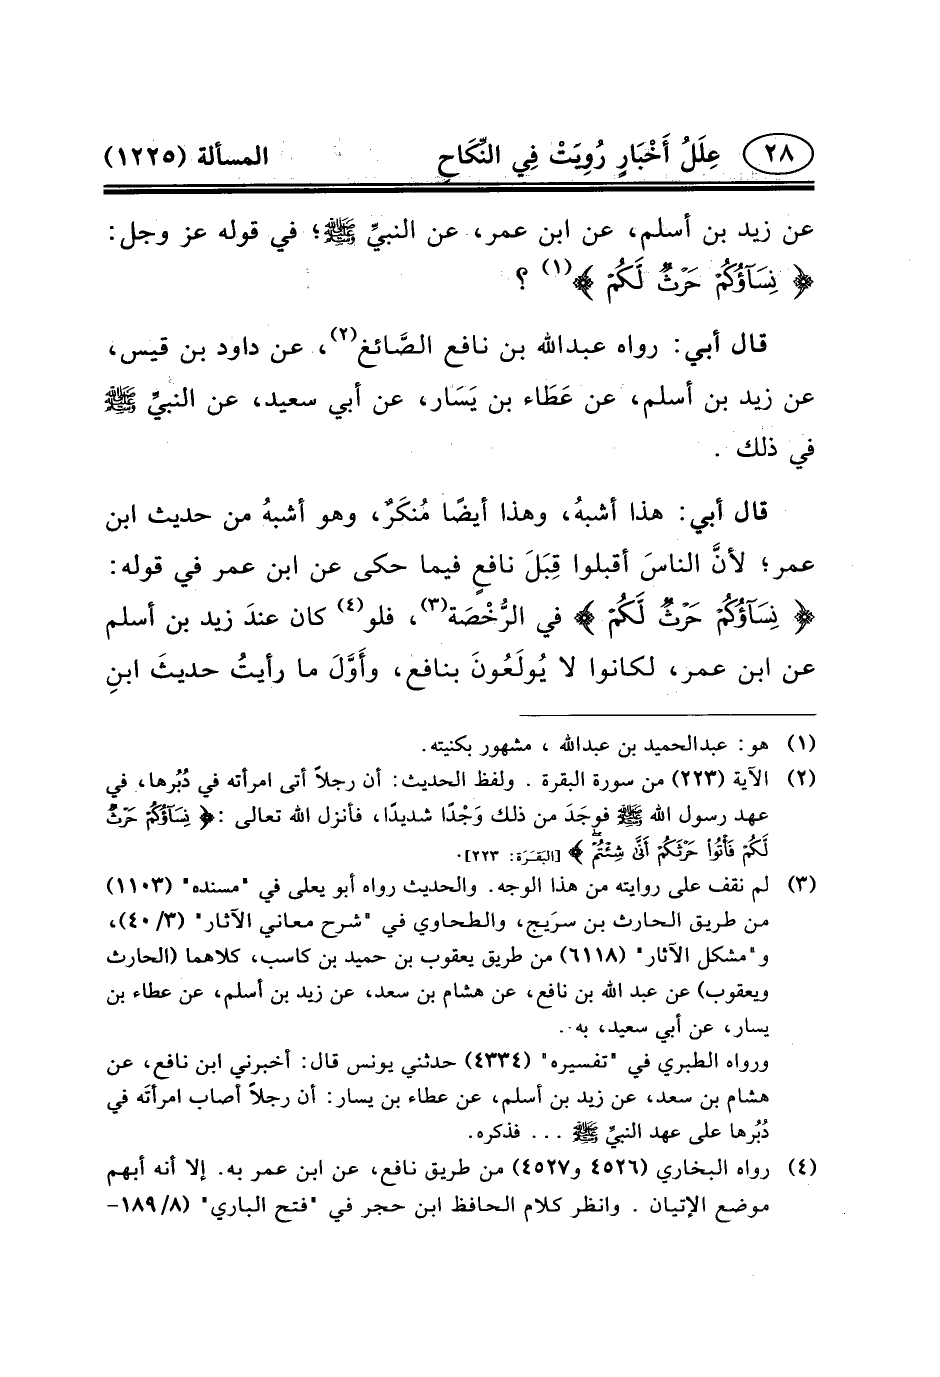 ٢٨ عِلَلُ أَخْبَارٍ رُوِيَتْ فِي النِّكَاحِ المسألة (١٢٢٥)
عن زيد بن أسلم، عن ابن عمر، عن النبيِّ ﷺ؛ في قوله عز وجل:
﴿ نِسَآؤُكُمْ حَرْثٌ لَكُمْ ﴾(١) ؟
قال أبي: رواه عبدالله بن نافع الصَّائغ(٢)، عن داود بن قيس،
عن زيد بن أسلم، عن عَطَاء بن يَسَار، عن أبي سعيد، عن النبيِّ ﷺ
في ذلك .
قال أبي: هذا أشبهُ، وهذا أيضًا مُنكَرٌ، وهو أشبهُ من حديث ابن
عمر؛ لأنَّ الناسَ أقبلوا قِبَلَ نافعٍ فيما حكى عن ابن عمر في قوله:
﴿ نِسَآؤُكُمْ حَرْثٌ لَكُمْ ﴾ في الرُّخْصَة(٣)، فلو(٤) كان عندَ زيد بن أسلم
عن ابن عمر، لكانوا لا يُولَعُونَ بنافع، وأَوَّلَ ما رأيتُ حديثَ ابنِ
(١) هو: عبدالحميد بن عبدالله ، مشهور بكنيته.
(٢) الآية (٢٢٣) من سورة البقرة . ولفظ الحديث: أن رجلاً أتى امرأته في دُبُرها، في
عهد رسول الله ﷺ فوجَدَ من ذلك وَجْدًا شديدًا، فأنزل الله تعالى :﴿ نِسَآؤُكُمْ حَرْثٌ
لَكُمْ فَأْتُوا۟ حَرْثَكُمْ أَنَّىٰ شِئْتُمْ ﴾ [البَقَرَة: ٢٢٣].
(٣) لم نقف على روايته من هذا الوجه. والحديث رواه أبو يعلى في "مسنده" (١١٠٣)
من طريق الحارث بن سرَيج، والطحاوي في "شرح معاني الآثار" (٤٠/٣)،
و"مشكل الآثار" (٦١١٨) من طريق يعقوب بن حميد بن كاسب، كلاهما (الحارث
ويعقوب) عن عبد الله بن نافع، عن هشام بن سعد، عن زيد بن أسلم، عن عطاء بن
يسار، عن أبي سعيد، به.
ورواه الطبري في "تفسيره" (٤٣٣٤) حدثني يونس قال: أخبرني ابن نافع، عن
هشام بن سعد، عن زيد بن أسلم، عن عطاء بن يسار: أن رجلاً أصاب امرأتَه في
دُبُرها على عهد النبيِّ ﷺ ... فذكره.
(٤) رواه البخاري (٤٥٢٦ و٤٥٢٧) من طريق نافع، عن ابن عمر به. إلا أنه أبهم
موضع الإتيان . وانظر كلام الحافظ ابن حجر في "فتح الباري" (١٨٩/٨-